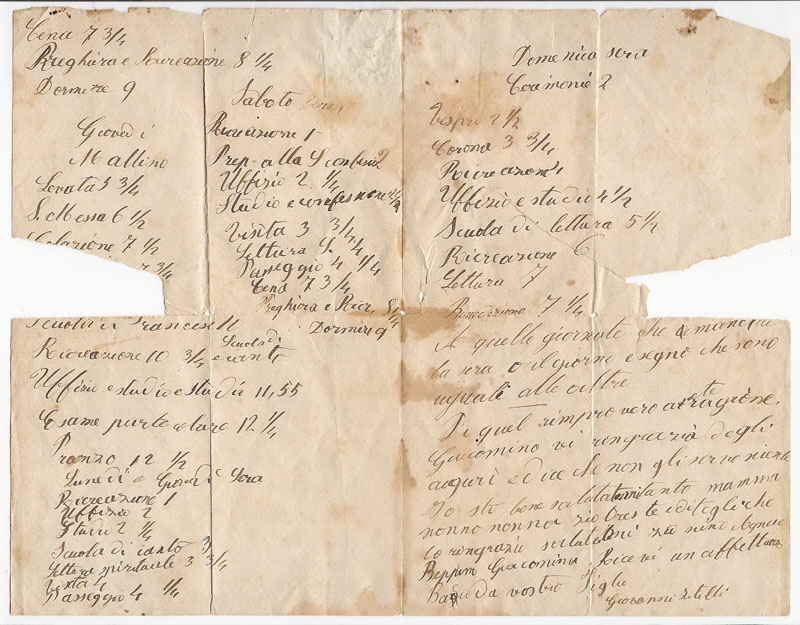 Cena 7 3/4
Preghiera e Ricreazione 8 1/4
Dormire 9
Giovedi
Mattino
Levata 5 3/4
S. Messa 6 1/2
Colazione 7 1/2
3/4
Scuola di Francese 11
Ricreazione 10 3/4 Scuola di
e canto
Uffizio e studio e studio 11,55
Esame particolare 12 1/4
Pranzo 12 1/2
Lunedi e Giovedi Sera
Ricreazione 1
Uffizio 2
Studio 2 1/4
Scuola di canto 3
Lettura spirituale 3 3/4
Visita 4
Passeggio 4 1/4
Saboto sera
Ricreazione 1
Prep. alla S confess 2
Uffizio 2 1/4
Studio e confessione 2 1/2
Visita 3 3/4
Lettura S. 3/4
Passeggio 4 1/4
Cena 7 3/4
Preghiera e Ricr. 8 1/4
Dormire 9
Domenica sera
Cerimonie 2
Vespri 2 1/2
Corona 3 3/4
Ricreazione 4
Uffizio e studio 4 1/2
Scuola di lettura 5 1/2
Ricreazione 6
Lettura 7
Ricreazione 7 1/4
A quelle giornate che manca
la sera o il giorno e segno che sono
uguali alle altre
Di quel rimprovero arragione.
Giacomino vi ringrazia degli
auguri e dice che non gli serve niente
Io sto bene salutatemi tanto mamma
nonno nonna zio e ditegli che
lo ringrazio salutatemi zio Agnese
Peppino Giacomina. Ricevi un affettuoso
bacio da vostro Figlio
Giovanni